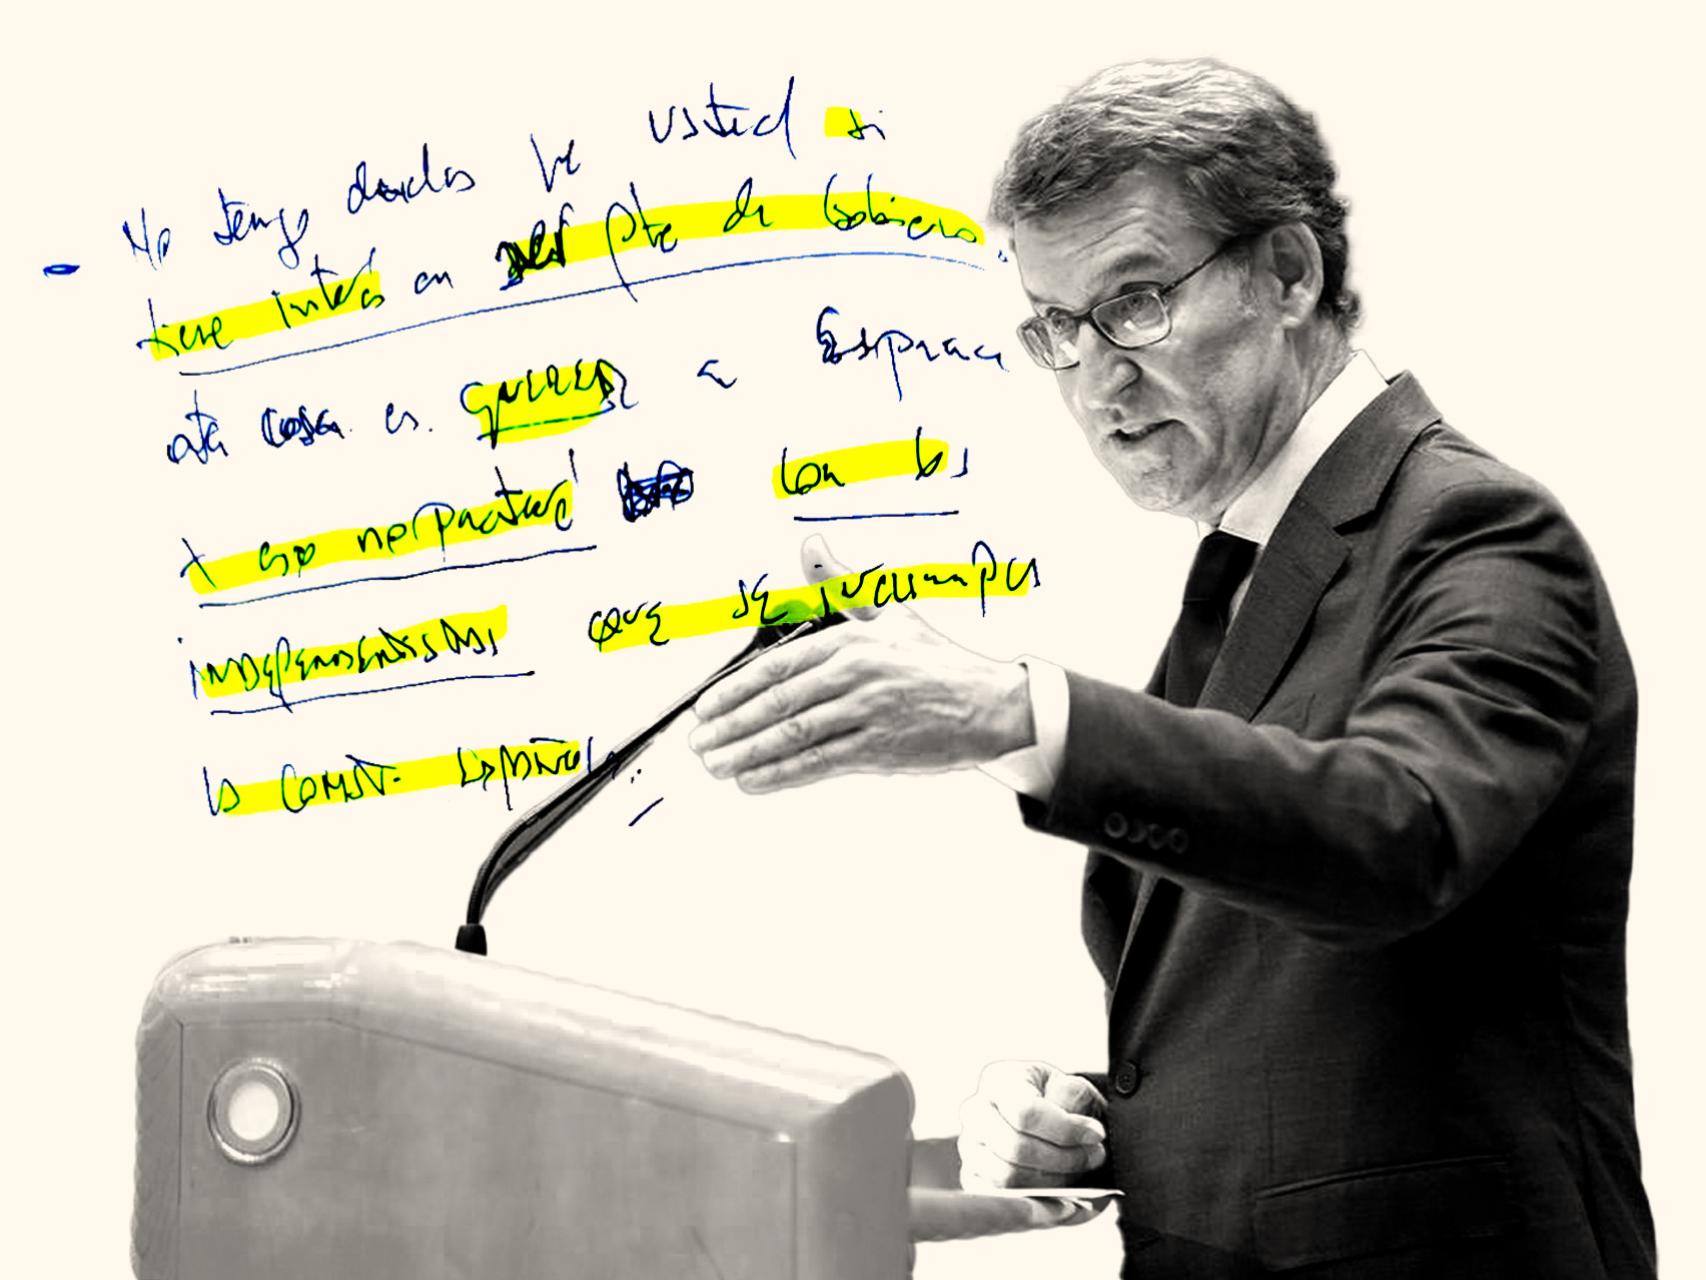 - No tengo dudas q̶ ̶ usted si
tiene interés en ser pte de Gobierno.
otra cosa es querer a España
y eso no pactaré con los
independentistas que se incumplen
la Const. Española.